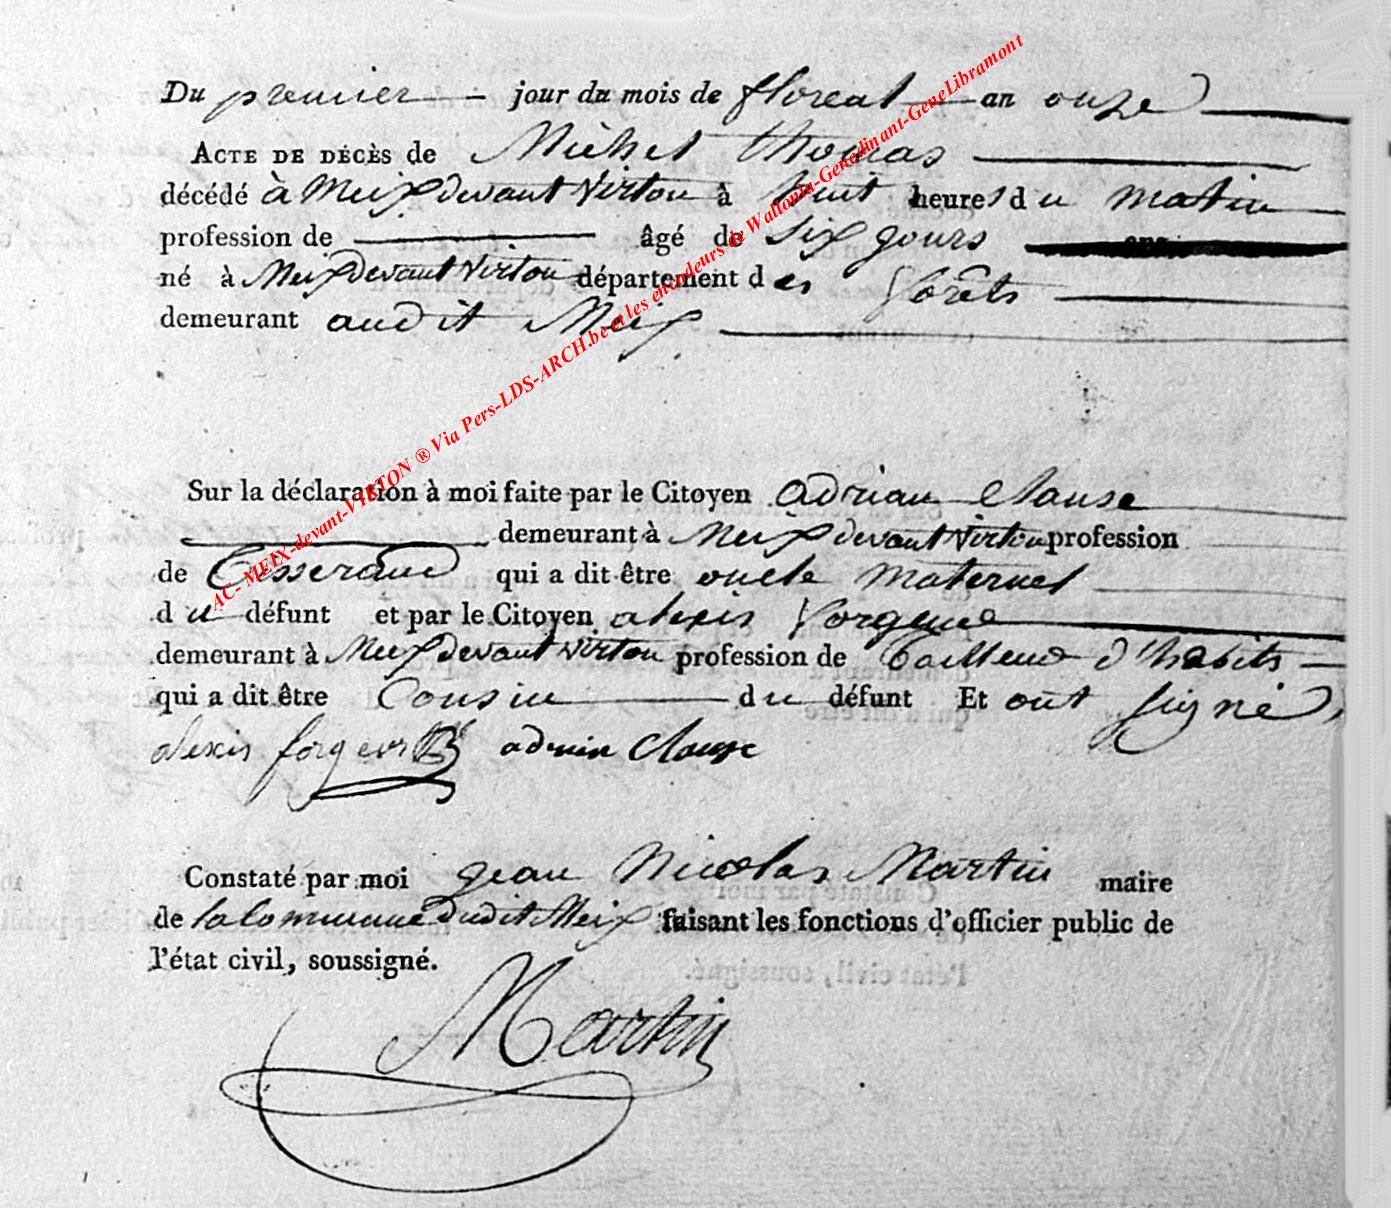 Du premier — jour du mois de floreal — an onze
ACTE DE DÉCÈS de Michel thomas
décédé à Meix devant Virton à huit heures du matin
profession de — âgé de six jours ans
né à Meix devant Virton département des forêts
demeurant audit Meix
Sur la déclaration à moi faite par le Citoyen adrian Clause
demeurant à Meix devant Virton profession
de Tisserand qui a dit être oncle maternel
du défunt et par le Citoyen alexis forgeur
demeurant à Meix devant Virton profession de Tailleur d'habits —
qui a dit être Cousin — du défunt Et ont signé,
alexis forgeur adrien Clause
Constaté par moi jean Nicolas Martin maire
de la Commune dudit Meix faisant les fonctions d'officier public de
l'état civil, soussigné.
Martin
AC- MEIX-devant-VIRTON ® Via Pers-LDS-ARCH.be et les encodeurs de Wallonia-Genedinant-GeneLibramont